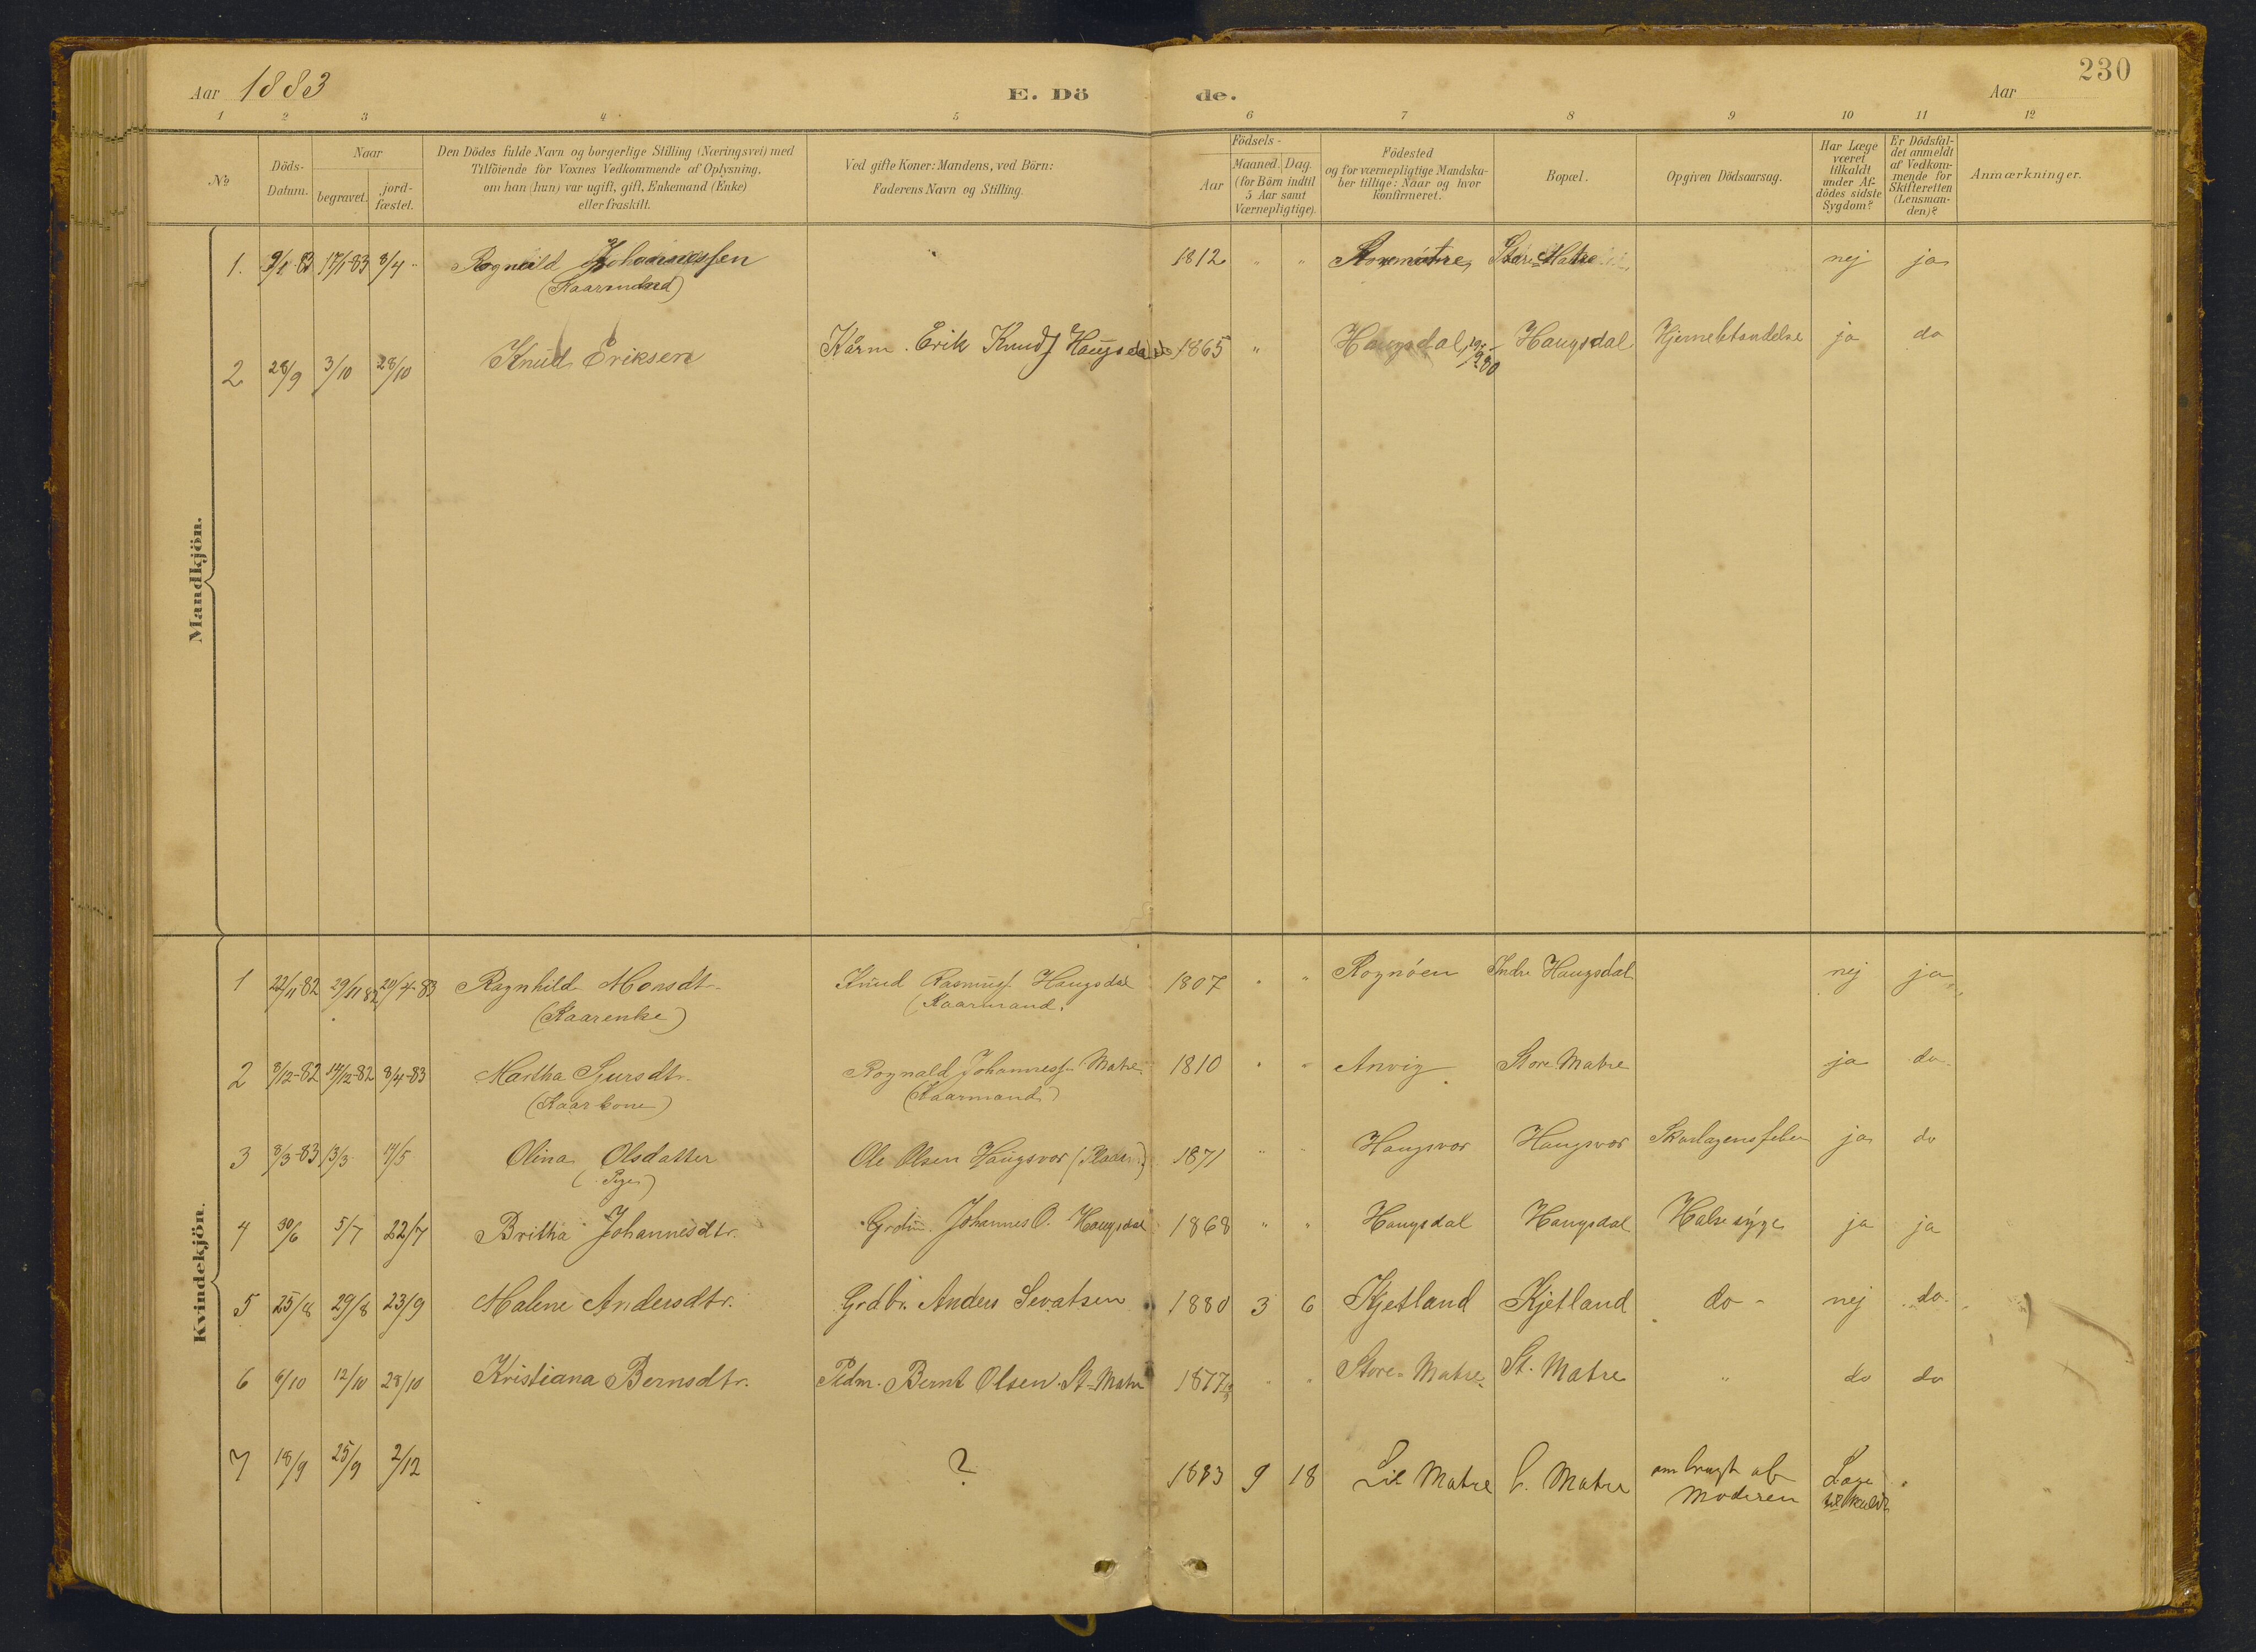 230
Aar 1883 E. Dö de. Aar
1 2 3 4 5 6 7 8 9 10 11 12
No
Döds-Datum.
Naar
begravet.
jord-fæstet.
Den Dödes fulde Navn og borgerlige Stilling (Næringsvei) med
Tilföiende for Voxnes Vedkommende af Oplysning,
om han (hun) var ugift, gift, Enkemand (Enke)
eller fraskilt.
Ved gifte Koner: Mandens, ved Börn:
Faderens Navn og Stilling.
Födsels-
Aar
Maaned. Dag.
(for Börn indtil
5 Aar samt
Værnepligtige).
Födested
og for værnepligtige Mandska-
ber tillige: Naar og hvor
Konfirmeret.
Bopæl.
Opgiven Dödsaarsag.
Har Læge
været
tilkaldt
under Af-
dödes sidste
Sygdom?
Er Dödsfal-
det anmeldt
af Vedkom-
mende for
Skifteretten
(Lensman-
den)?
Anmærkninger.
Mandkjön.
1. 9/1-83 17/1-83 8/4 Johannessen 1812 " " Store Matre nej ja
(Kaarmand)
2 28/9 3/10 28/10 Knud Eriksen Kårm. Erik Knuds Haugsdal 1865 " Haugsdal Haugsdal Hjernebetændelse ja do
Kvindekjön.
1 22/11-82 29/11 82 20/4-83 Ragnhild Monsdtr. Knud Rasmus. Haugsdal 1807 " " Rognöen Indre Haugsdal nej ja
(Kaarenke) (Kaarmand.
2 8/12-82 14/12-82 8/4-83 Martha Sjursdtr. Rognald Johanness. Matre 1810 " " Anvig Store Matre ja do
(Kaarkone) (Kaarmand)
3 8/3-83 13/3 14/5 Olina Olsdatter Ole Olsen Haugsvor 1871 " " Haugsvor Haugsvor Skarlagensfeber ja do
(Pige)
4 30/6 5/7 22/7 Britha Johannesdtr. Johannes O. Haugsdal 1868 " " Haugsdal Haugsdal Halssyge ja ja
5 25/8 29/8 23/9 Malene Andersdtr. Grdbr. Anders Sevatsen 1880 3 6 Kjetland Kjetland do nej do
6 6/10 12/10 28/10 Kristiana Bernsdtr. Bernt Olsen St-Matre 1877 " " Store-Matre St. Matre " do do
7 18/9 25/9 2/12 ? 1883 9 18 Lil Matre L. Matre ombragt af Læge
Moderen tilkaldt